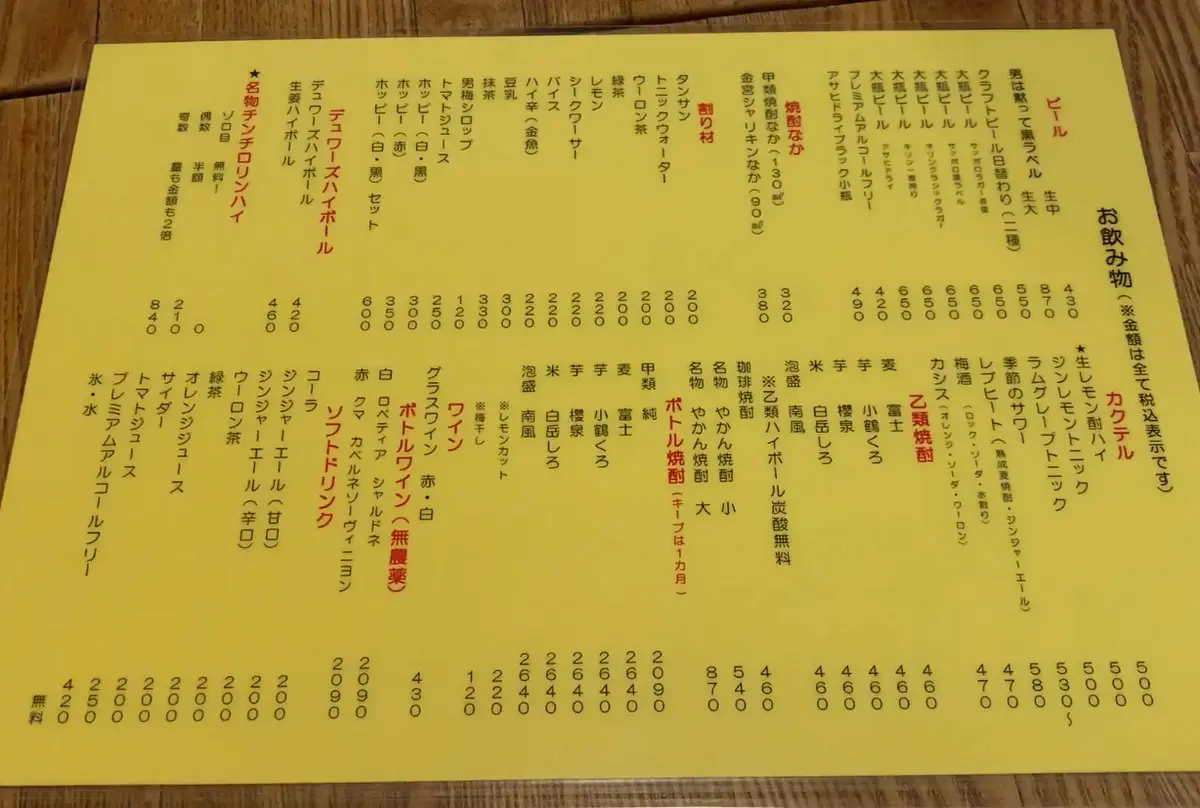 お飲み物(※金額は全て税込表示です)
ビール
男は黙って黒ラベル 生中 430
生大 870
クラフトビール日替わり(二種) 550
大瓶ビール サッポロラガー赤星 650
大瓶ビール サッポロ黒ラベル 650
大瓶ビール キリンクラシックラガー 650
大瓶ビール キリン一番搾り 650
大瓶ビール アサヒドライ 650
プレミアムアルコールフリー 420
アサヒドライブラック小瓶 490
焼酎なか
甲類焼酎なか(130㎖) 320
金宮シャリキンなか(90㎖) 380
割り材
タンサン 200
トニックウォーター 200
ウーロン茶 200
緑茶 200
レモン 220
シークワーサー 220
バイス 220
ハイ辛(金魚) 220
豆乳 300
抹茶 330
男梅シロップ 120
トマトジュース 250
ホッピー(白・黒) 300
ホッピー(赤) 350
ホッピー(白・黒)セット 600
デュワーズハイボール
デュワーズハイボール 420
生姜ハイボール 460
★名物チンチロリンハイ
ゾロ目 無料! 0
偶数 半額 210
奇数 量も金額も2倍 840
カクテル
★生レモン酎ハイ 500
ジンレモントニック 500
ラムグレープトニック 500
季節のサワー 530~
レブヒート(熟成麦焼酎・ジンジャーエール) 580
梅酒(ロック・ソーダ・水割り) 470
カシス(オレンジ・ソーダ・ウーロン) 470
乙類焼酎
麦 富士 460
芋 小鶴くろ 460
芋 櫻泉 460
米 白岳しろ 460
泡盛 南風 460
※乙類ハイボール炭酸無料
珈琲焼酎 460
名物 やかん焼酎 小 540
名物 やかん焼酎 大 870
ボトル焼酎(キープは1カ月)
甲類 純 2090
麦 富士 2640
芋 小鶴くろ 2640
芋 櫻泉 2640
米 白岳しろ 2640
泡盛 南風 2640
※レモンカット 220
※梅干し 120
ワイン
グラスワイン 赤・白 430
ボトルワイン(無農薬)
白 ロペティア シャルドネ 2090
赤 クマ カベルネソーヴィニヨン 2090
ソフトドリンク
コーラ 200
ジンジャーエール(甘口) 200
ジンジャーエール(辛口) 200
ウーロン茶 200
緑茶 200
オレンジジュース 200
サイダー 200
トマトジュース 250
プレミアムアルコールフリー 420
氷・水 無料